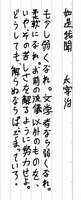 如是我聞　太宰治
もう少し弱くなれ。文学者ならば弱くなれ。
柔軟になれ。お前の流儀以外のものを、
いや、その苦しさを解るように努力せよ。
どうしても、解らぬならば、だまっていろ。